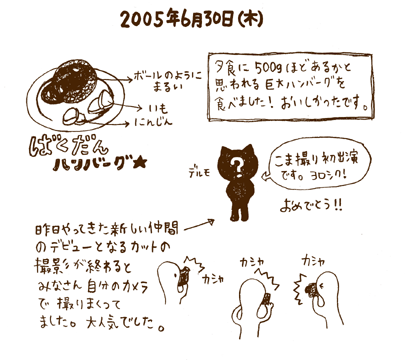 2005年6月30日(木)
ボールのように
まるい
いも
にんじん
ばくだん
ハンバーグ★
夕食に500gほどあるかと
思われる巨大ハンバーグを
食べました！おいしかったです。
デルモ
?
こま撮り初出演
です。ヨロシク！
おめでとう!!
昨日やってきた新しい仲間
のデビューとなるカットの
撮影が終わると
みなさん自分のカメラ
で撮りまくって
ました。大人気でした。
カシャ
カシャ
カシャ